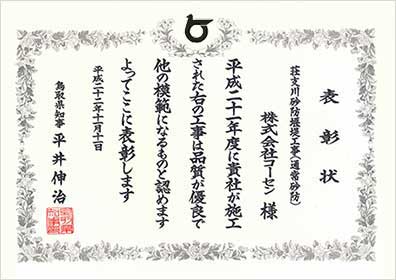 表彰状
荘支川砂防堰堤工事(通常砂防)
株式会社コーセン 様
平成二十一年度に貴社が施工
された右の工事は品質が優良で
他の模範になるものと認めます
よってここに表彰します
平成二十二年十一月十一日
鳥取県知事 平井伸治